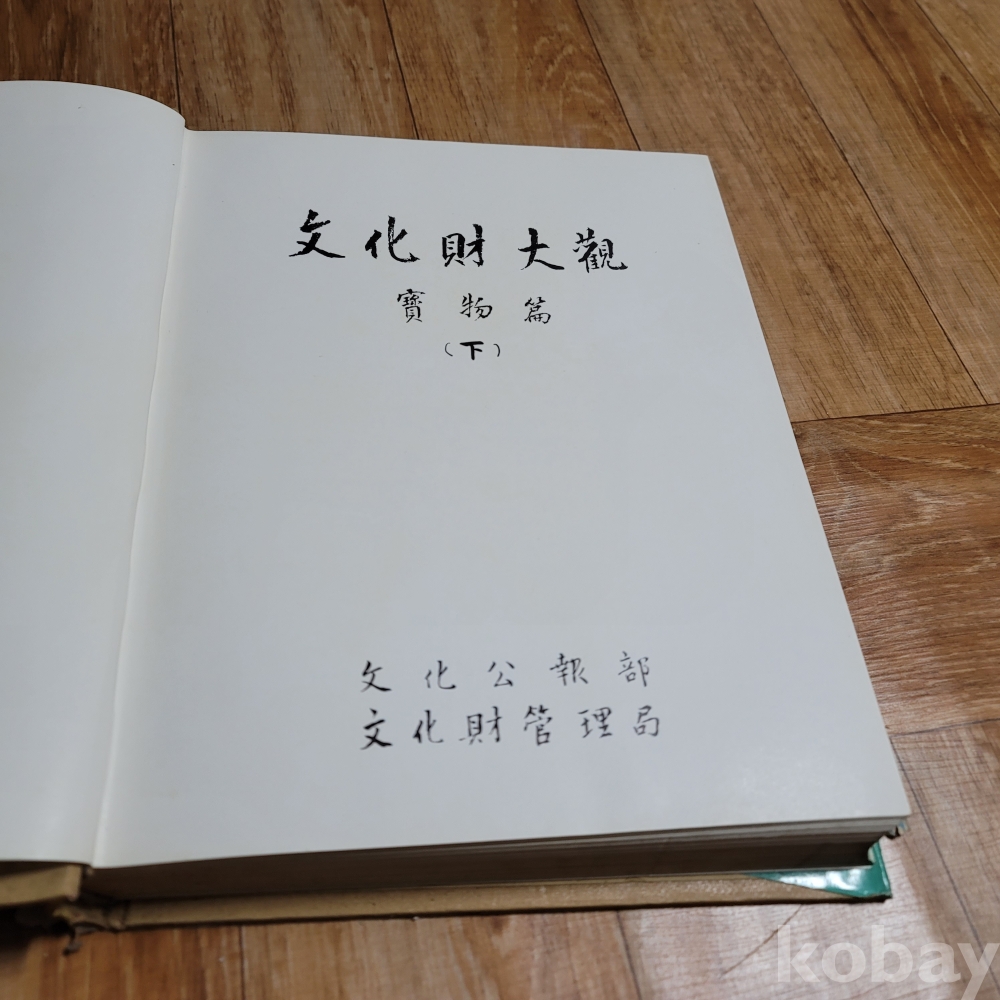 文化財大觀
寶物篇
(下)
文化公報部
文化財管理局
kobay